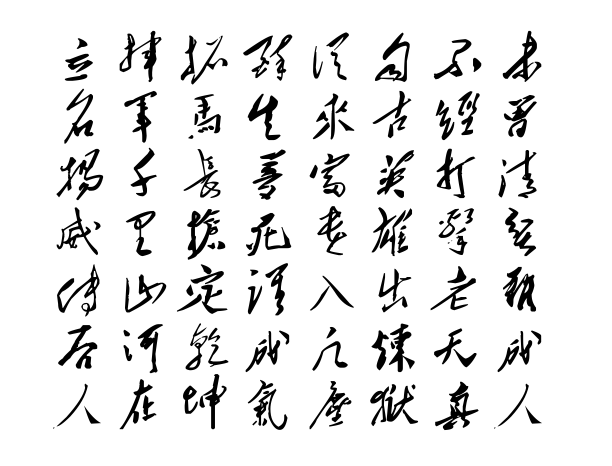 未曾清貧難成人
不經打擊老天真
自古英雄出煉獄
從來富貴入凡塵
醉生夢死誰成氣
拓馬長槍定乾坤
揮軍千里山河在
立名揚威傳后人